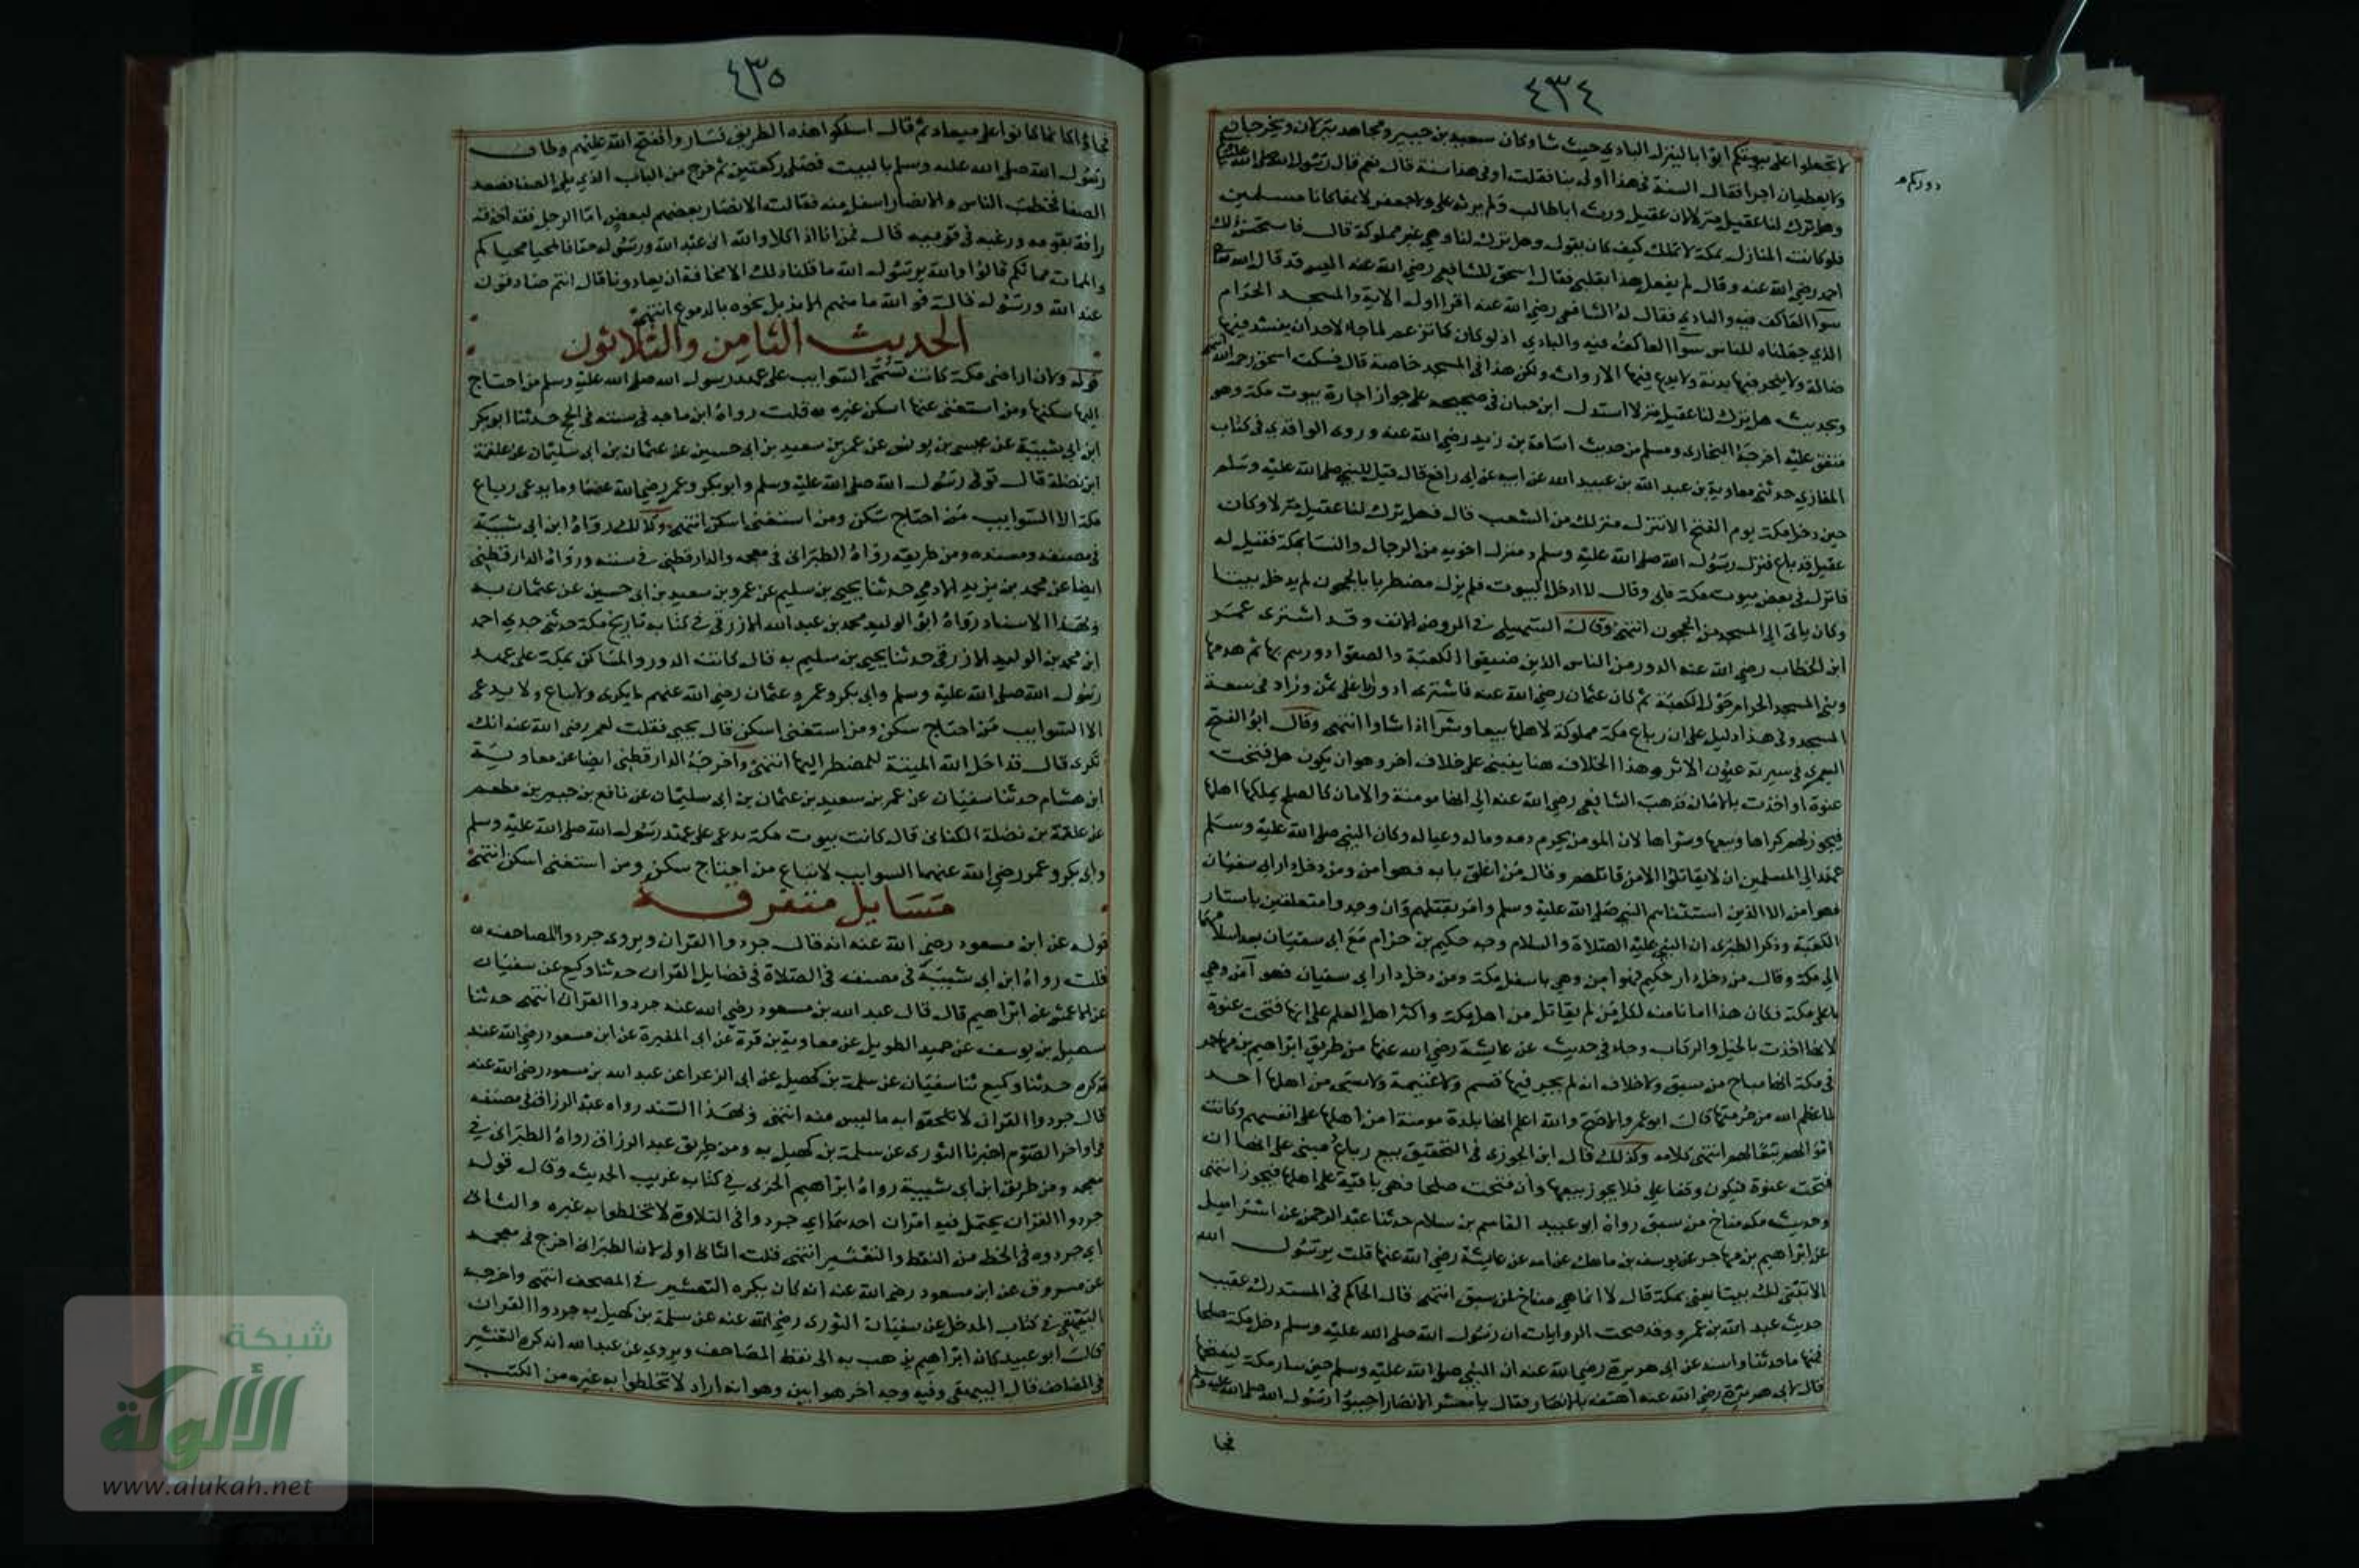 ٤٣٤
دوركم
لا تجعلوا على بيوتكم ابوابا لينزل البادي حيث شا وكان سعيد بن جبير ومجاهد
ولا يعطيان اجرا فقال السنة في هذا اولى بنا فقلت او في هذا سنة قال نعم قال رسول الله صلى الله عليه
وهل ترك لنا عقيل منزلا لان عقيل ورث اباطالب ولم يرثه علي ولا جعفر لانهما كانا مسلمين
فلو كانت المنازل بمكة لا تملك كيف كان يقول وهل ترك لنا وهي غير مملوكة قال فاستحسن ذلك
احمد رضي الله عنه وقال لم يقع هذا بقلبي فقال اسحق للشافعي رضي الله عنه اليس قد قال الله
سوآ العاكف فيه والبادي فقال له الشافعي رضي الله عنه اقرا اول الاية والمسجد الحرام
الذي جعلناه للناس سوآ العاكف فيه والبادي اذ لو كان كما تزعم لما جاز لاحد ان ينشد فيها
ضالة ولا ينحر فيها بدنة ولا يدع فيها الارواث ولكن هذا في المسجد خاصة قال فسكت اسحق
وبحديث هل ترك لنا عقيل منزلا استدل ابن حبان في صحيحه على جواز اجارة بيوت مكة وهو
متفق عليه اخرجه البخاري ومسلم من حديث اسامة بن زيد رضي الله عنه وروى الواقدي في كتاب
المغازي حدثني معاوية بن عبد الله بن عبيد الله عن ابيه عن ابي رافع قال قيل للنبي صلى الله عليه وسلم
حين دخل مكة يوم الفتح الا تنزل منزلك من الشعب قال فهل ترك لنا عقيل منزلا وكان
عقيل قد باع منزل رسول الله صلى الله عليه وسلم ومنزل اخويه من الرجال والنسا بمكة فقيل له
فانزل في بعض بيوت مكة فابى وقال لا ادخل البيوت فلم يزل مضطربا بالحجون لم يدخل بيتا
وكان ياتي الى المسجد من الحجون انتهى وقال السهيلي في الروض الانف وقد اشترى عمر
ابن الخطاب رضي الله عنه الدور من الناس الذين ضيقوا الكعبة والصقوا دورهم بها ثم هدمها
وبنى المسجد الحرام حول الكعبة ثم كان عثمان رضي الله عنه فاشترى دورا باغلى ثمن وزاد في سعة
المسجد وفي هذا دليل على ان رباع مكة مملوكة لاهلها بيعا وشرآ اذا شاوا انتهى وقال ابو الفتح
اليعمري في سيرته عيون الاثر وهذا الخلاف هنا يبتنى على خلاف اخر وهو ان مكة هل فتحت
عنوة او اخذت بالامان فذهب الشافعي رضي الله عنه الى انها مومنة والامان كالصلح يملكها اهلها
فيجوز لهم كراها وبيعها وشراها لان المومن يحرم دمه وماله وعياله وكان النبي صلى الله عليه وسلم
عهد الى المسلمين ان لا يقاتلوا الا من قاتلهم وقال من اغلق بابه فهو امن ومن دخل دار ابي سفيان
فهو امن الا الذين استثناهم النبي صلى الله عليه وسلم وامر بقتلهم وان وجدوا متعلقين باستار
الكعبة وذكر الطبري ان النبي عليه الصلاة والسلام وجه حكيم بن حزام مع ابي سفيان بعد اسلامهما
الى مكة وقال من دخل دار حكيم فهو امن وهي باسفل مكة ومن دخل دار ابي سفيان فهو آمن وهي
باعلى مكة فكان هذا امانا منه لكل من لم يقاتل من اهل مكة واكثر اهل العلم على انها فتحت عنوة
لانها اخذت بالخيل والركاب وجاء في حديث عن عايشة رضي الله عنها من طريق ابراهيم بن مهاجر
في مكة انها مباح من سبق ولا خلاف انه لم يجر فيها قسم ولا غنيمة ولا سبي من اهلها احد
لما عظم الله من حرمتها قال ابو عمر والاصح والله اعلم انها بلدة مومنة امن اهلها على انفسهم وكانت
اموالهم تبعا لهم انتهى كلامه وكذلك قال ابن الجوزي في التحقيق بيع رباع مبني على انها ان
فتحت عنوة فيكون وقفا على فلا يجوز بيعها وان فتحت صلحا فهي باقية على اهلها فيجوز انتهى
وحديث مكة مناخ من سبق رواه ابو عبيد القاسم بن سلام حدثنا عبد الرحمن عن اسراييل
عن ابراهيم بن مهاجر عن يوسف بن ماهك عن امه عن عايشة رضي الله عنها قلت يرسول الله
الا نبتني لك بيتا يعني بمكة قال لا انما هي مناخ لمن سبق انتهى قال الحاكم في المستدرك عقيب
حديث عبد الله بن عمرو وقد صحت الروايات ان رسول الله صلى الله عليه وسلم دخل مكة صلحا
فمنها ما حدثنا واسند عن ابي هريرة رضي الله عنه ان النبي صلى الله عليه وسلم حين سار مكة ليفتحها
قال لابي هريرة رضي الله عنه اهتف بالانصار فقال يا معشر الانصار اجيبوا رسول الله صلى الله عليه وسلم
فجا
٤٣٥
فجاؤا كانما كانوا على ميعاد ثم قال اسلكوا هذه الطريق فسار وافتتح الله عليهم وطاف
رسول الله صلى الله عليه وسلم بالبيت فصلى ركعتين ثم خرج من الباب الذي يلي الصفا فصعد
الصفا فخطب الناس والانصار اسفل منه فقالت الانصار بعضهم لبعض اما الرجل فقد اخذته
رافة بقومه ورغبة في قريته قال فمن انا اذا كلا والله اني عبد الله ورسوله حقا فالمحيا محياكم
والممات مماتكم قالوا والله يرسول الله ما قلنا ذلك الا مخافة ان يعادونا قال انتم صادقون
عند الله ورسوله قال فوالله ما منهم الا من بل نحره بالدموع انتهى
الحديث الثامن والثلاثون
قوله ولان اراضى مكة كانت تسمى السوايب على عهد رسول الله صلى الله عليه وسلم من احتاج
اليها سكنها ومن استغنى عنها اسكن غيره قلت رواه ابن ماجه في سننه في الحج حدثنا ابو بكر
ابن ابي شيبة عن عيسى بن يونس عن عمر بن سعيد بن ابي حسين عن عثمان بن ابي سليمان عن علقمة
ابن نضلة قال توفى رسول الله صلى الله عليه وسلم وابو بكر وعمر رضي الله عنهما وما يدعى رباع
مكة الا السوايب من احتاج سكن ومن استغنى اسكن انتهى وكذلك رواه ابن ابي شيبة
في مصنفه ومسنده ومن طريقه رواه الطبراني في معجمه والدارقطني في سننه ورواه الدارقطني
ايضا عن محمد بن يزيد الادمي حدثنا يحيى بن سليم عن عمرو بن سعيد بن ابي حسين عن عثمان به
وبهذا الاسناد رواه ابو الوليد محمد بن عبد الله الازرقي في كتابه تاريخ مكة حدثني جدي احمد
ابن محمد بن الوليد الازرقي حدثنا يحيى بن سليم به قال كانت الدور والمساكن بمكة على عهد
رسول الله صلى الله عليه وسلم وابي بكر وعمر وعثمان رضي الله عنهم لا تكرى ولا تباع ولا يدعى
الا السوايب من احتاج سكن ومن استغنى اسكن قال يحيى فقلت لعمر رضي الله عنه انك
تكرى قال قد احل الله الميتة للمضطر اليها انتهى واخرجه الدارقطني ايضا عن معاوية
ابن هشام حدثنا سفيان عن عمر بن سعيد بن عثمان بن ابي سليمان عن نافع بن جبير بن مطعم
عن علقمة بن نضلة الكناني قال كانت بيوت مكة تدعى على عهد رسول الله صلى الله عليه وسلم
وابي بكر وعمر رضي الله عنهما السوايب لا تباع من احتاج سكن ومن استغنى اسكن انتهى
مسايل متفرقة
قوله عن ابن مسعود رضي الله عنه انه قال جردوا القران ويروى جردوا المصاحف
قلت رواه ابن ابي شيبة في مصنفه في الصلاة في فضايل القران حدثنا وكيع عن سفيان
عن الاعمش عن ابراهيم قال قال عبد الله بن مسعود رضي الله عنه جردوا القران انتهى حدثنا
سهيل بن يوسف عن حميد الطويل عن معاوية بن قرة عن ابي المغيرة عن ابن مسعود رضي الله عنه
فذكره حدثنا وكيع ثنا سفيان عن سلمة بن كهيل عن ابي الزعرا عن عبد الله بن مسعود رضي الله عنه
قال جردوا القران لا تلحقوا به ما ليس منه انتهى وبهذا السند رواه عبد الرزاق في مصنفه
في اواخر الصوم اخبرنا الثوري عن سلمة بن كهيل به ومن طريق عبد الرزاق رواه الطبراني في
معجمه ومن طريق ابن ابي شيبة رواه ابراهيم الحربي في كتابه غريب الحديث وقال قوله
جردوا القران يحتمل فيه امران احدهما اي جردوا في التلاوة لا تخلطوا به غيره والثاني
اي جردوه في الخط من النقط والتعشير انتهى قلت الثاني اولى لان الطبراني اخرج في معجمه
عن مسروق عن ابن مسعود رضي الله عنه انه كان يكره التعشير في المصحف انتهى واخرجه
البيهقي في كتاب المدخل عن سفيان الثوري رضي الله عنه عن سلمة بن كهيل به جردوا القران
قال ابو عبيد كان ابراهيم يذهب به الى نقط المصاحف ويروي عن عبد الله انه كره التعشير
في المصاحف قال البيهقي وفيه وجه اخر هو ابين وهو انه اراد لا تخلطوا به غيره من الكتب
شبكة
الألوكة
www.alukah.net